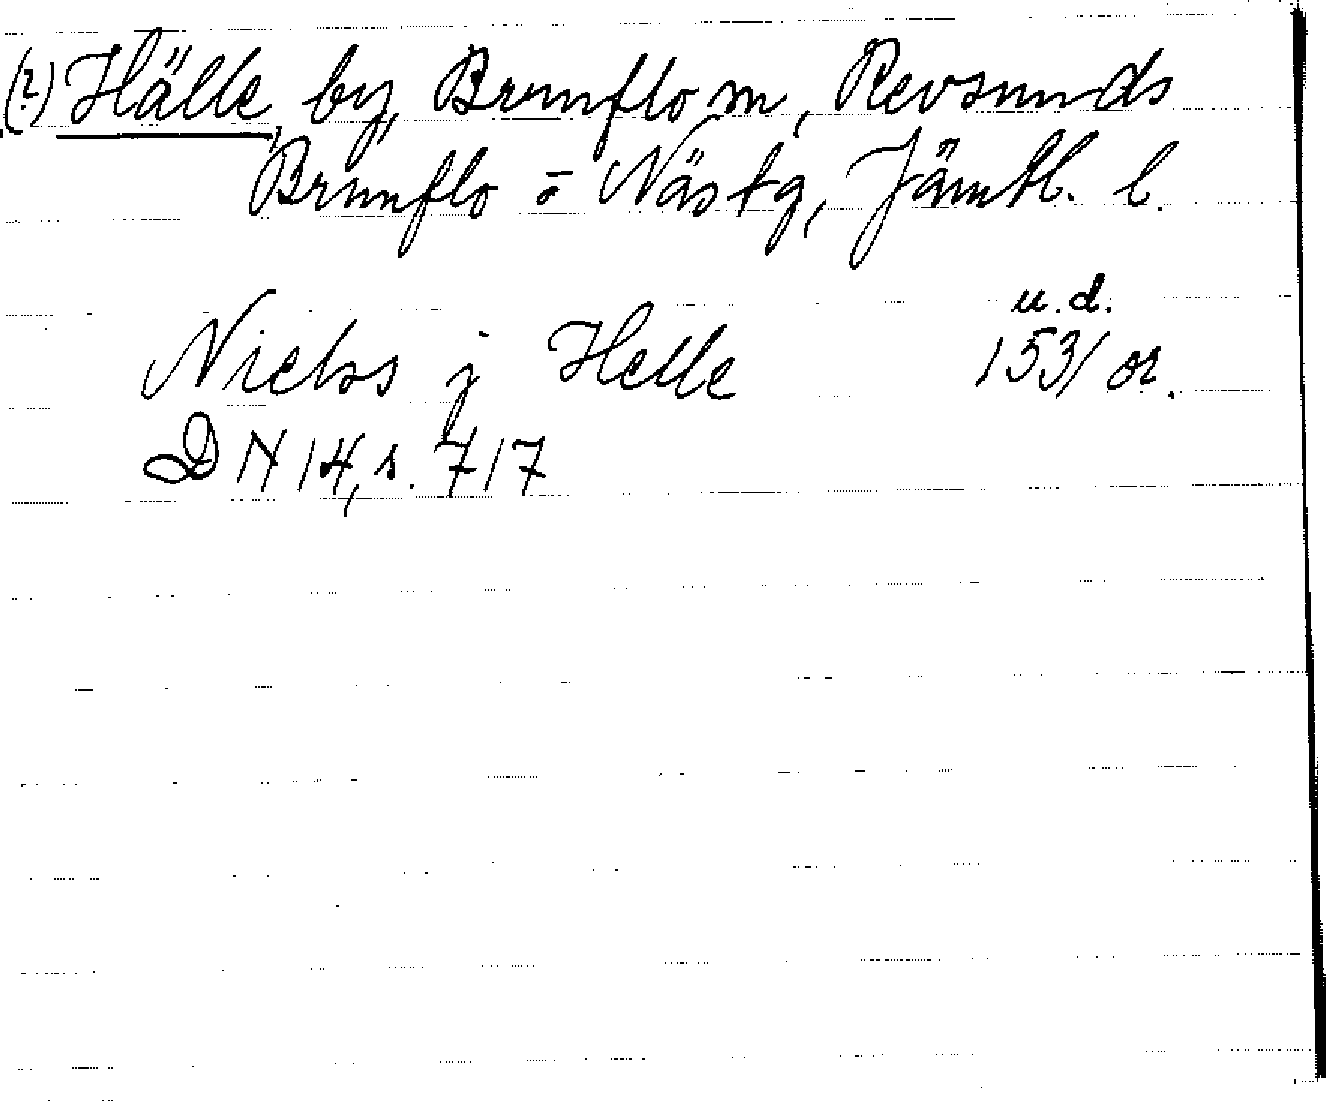 (?) Hälle, by, Brunflo sn, Revsunds
Brunflo o Näs tg, Jämtl. l.
u.d.
Nielss j Helle 1531 or.
DN 14, s. 717